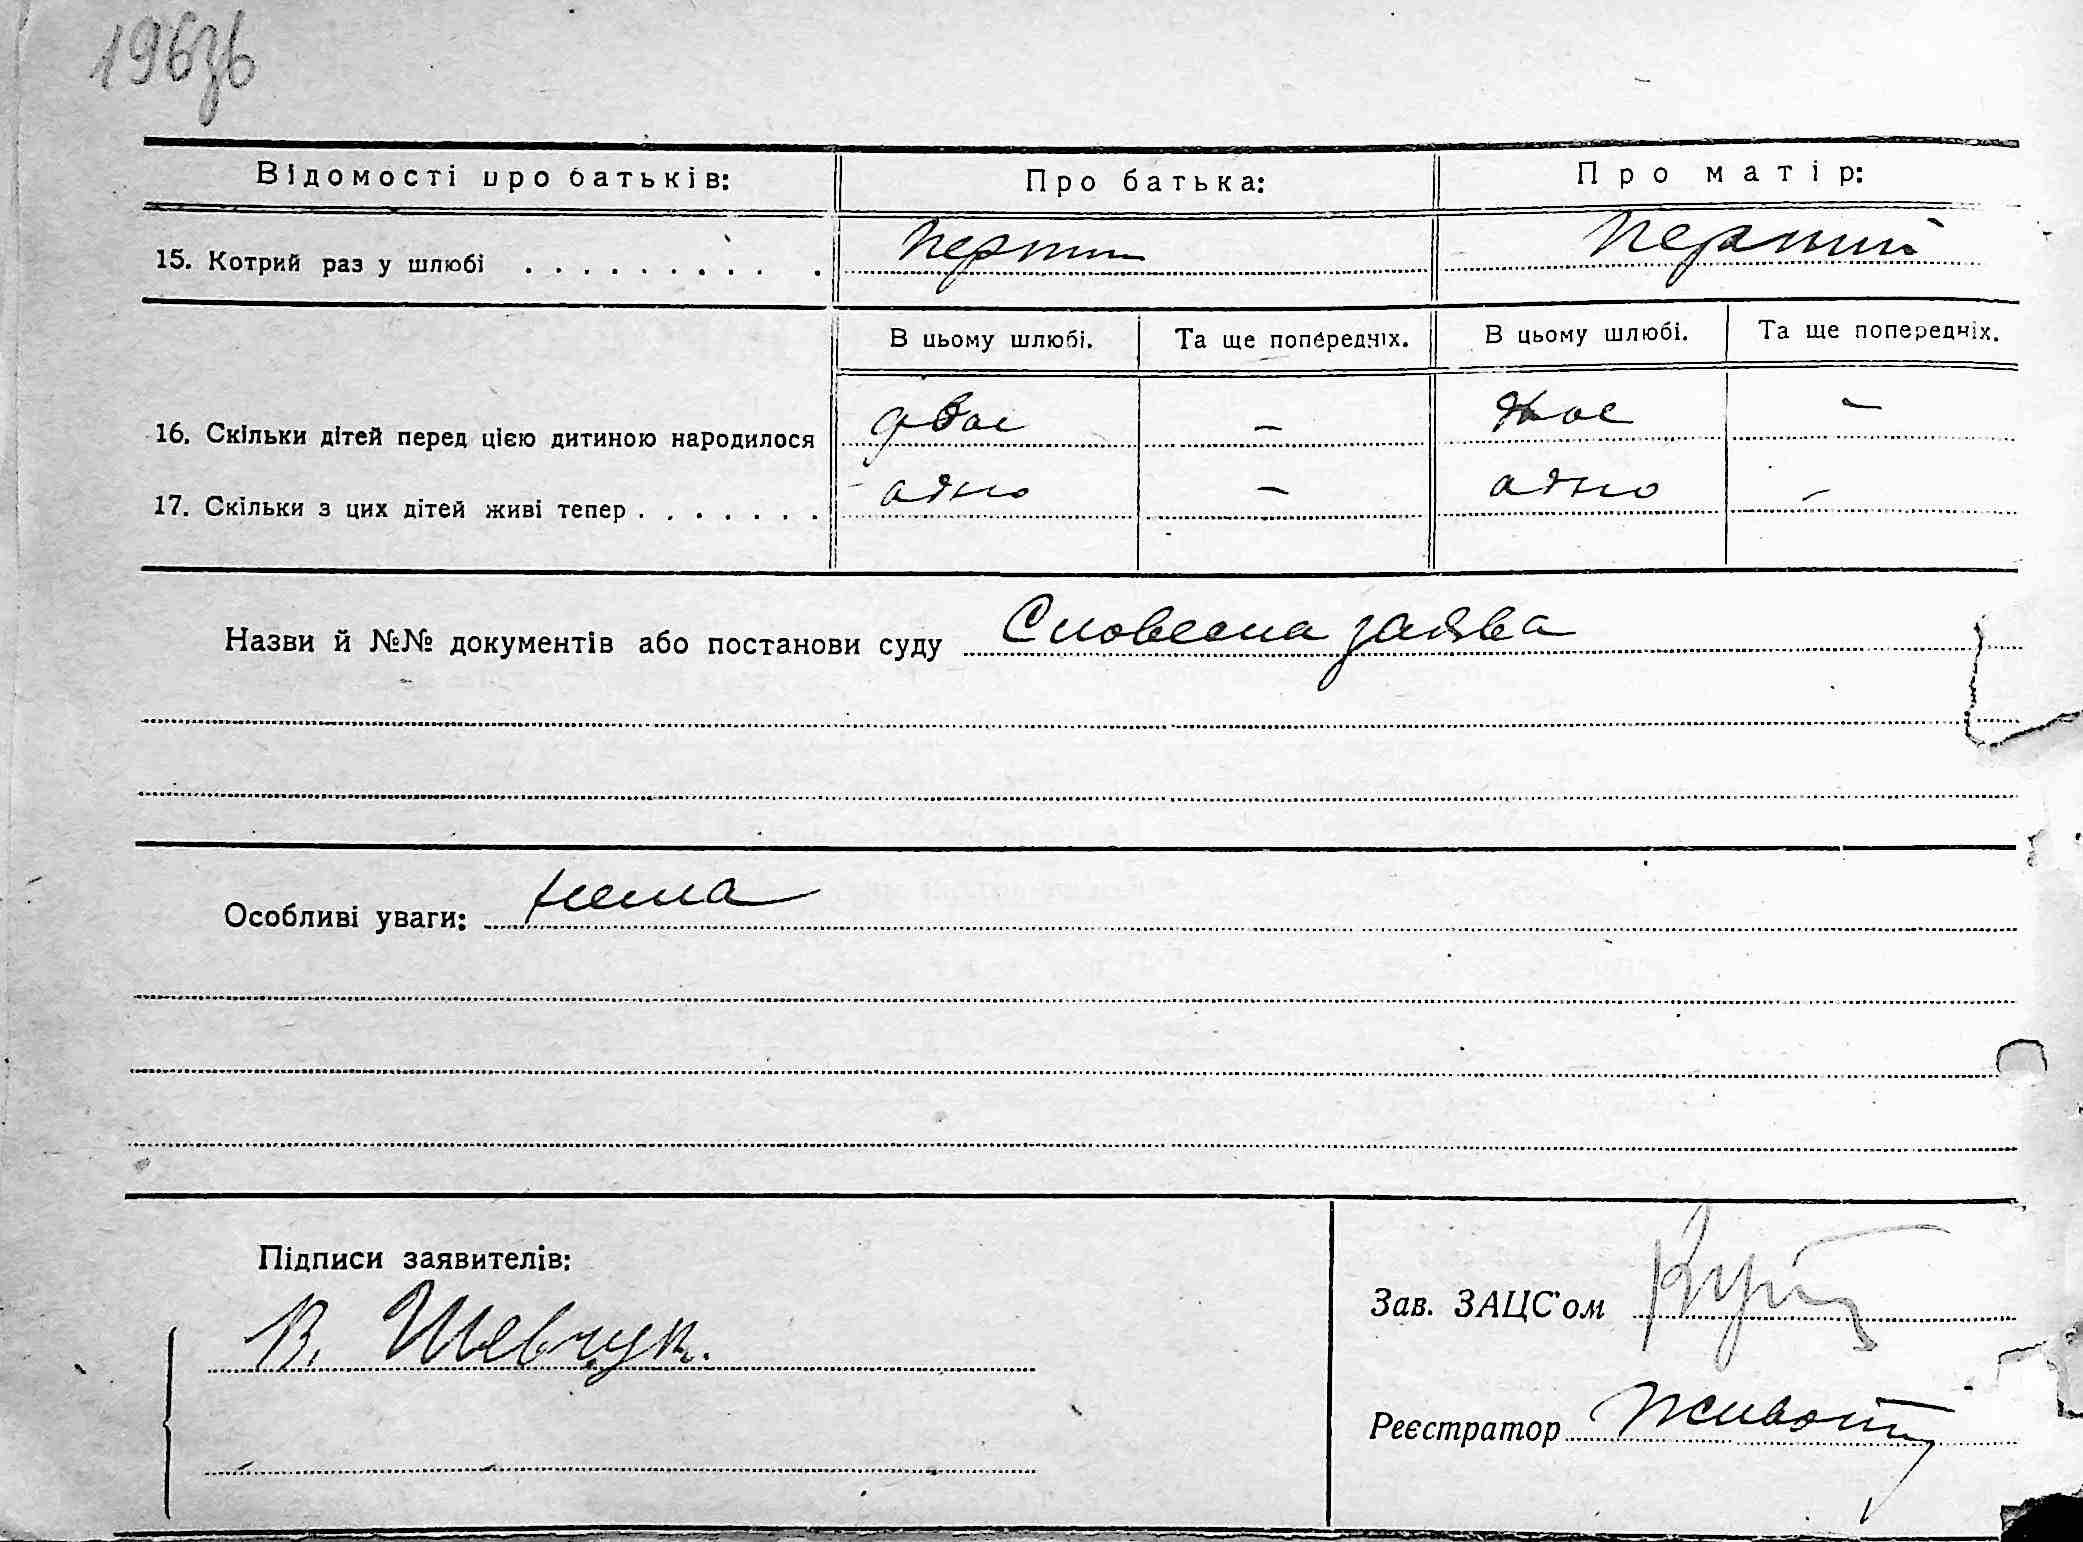 196зв
Відомості про батьків: Про батька: Про матір:
15. Котрий раз у шлюбі . . . . . . . . . . . перший перший
В цьому шлюбі. Та ще попередніх. В цьому шлюбі. Та ще попередніх.
16. Скільки дітей перед цією дитиною народилося двоє - двоє -
17. Скільки з цих дітей живі тепер . . . . . . . одно - одно -
Назви й №№ документів або постанови суду Словесна заява
Особливі уваги: нема
Підписи заявителів:
В. Шевчук.
Зав. ЗАЦС'ом
Реєстратор